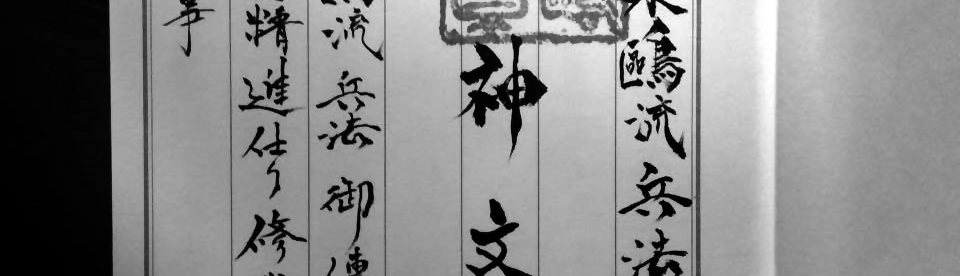 鷗流兵法
神文
流兵法御傳
精進仕り修
事